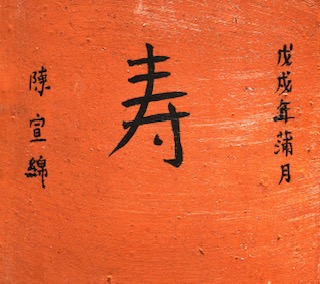 戊戌年蒲月
寿
陳宣綿